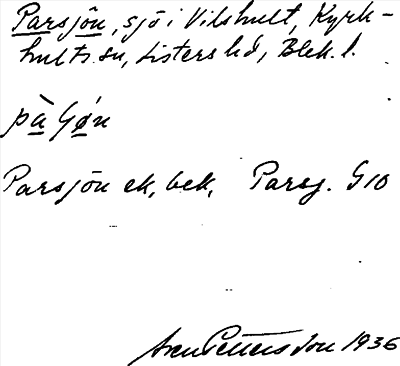 Parsjön, sjö i Vilshult, Kyrk-
hults sn, Listers hd, Blek. l.
Parsjön ek, bek, Parsj. G 10
Sven Pettersson 1936